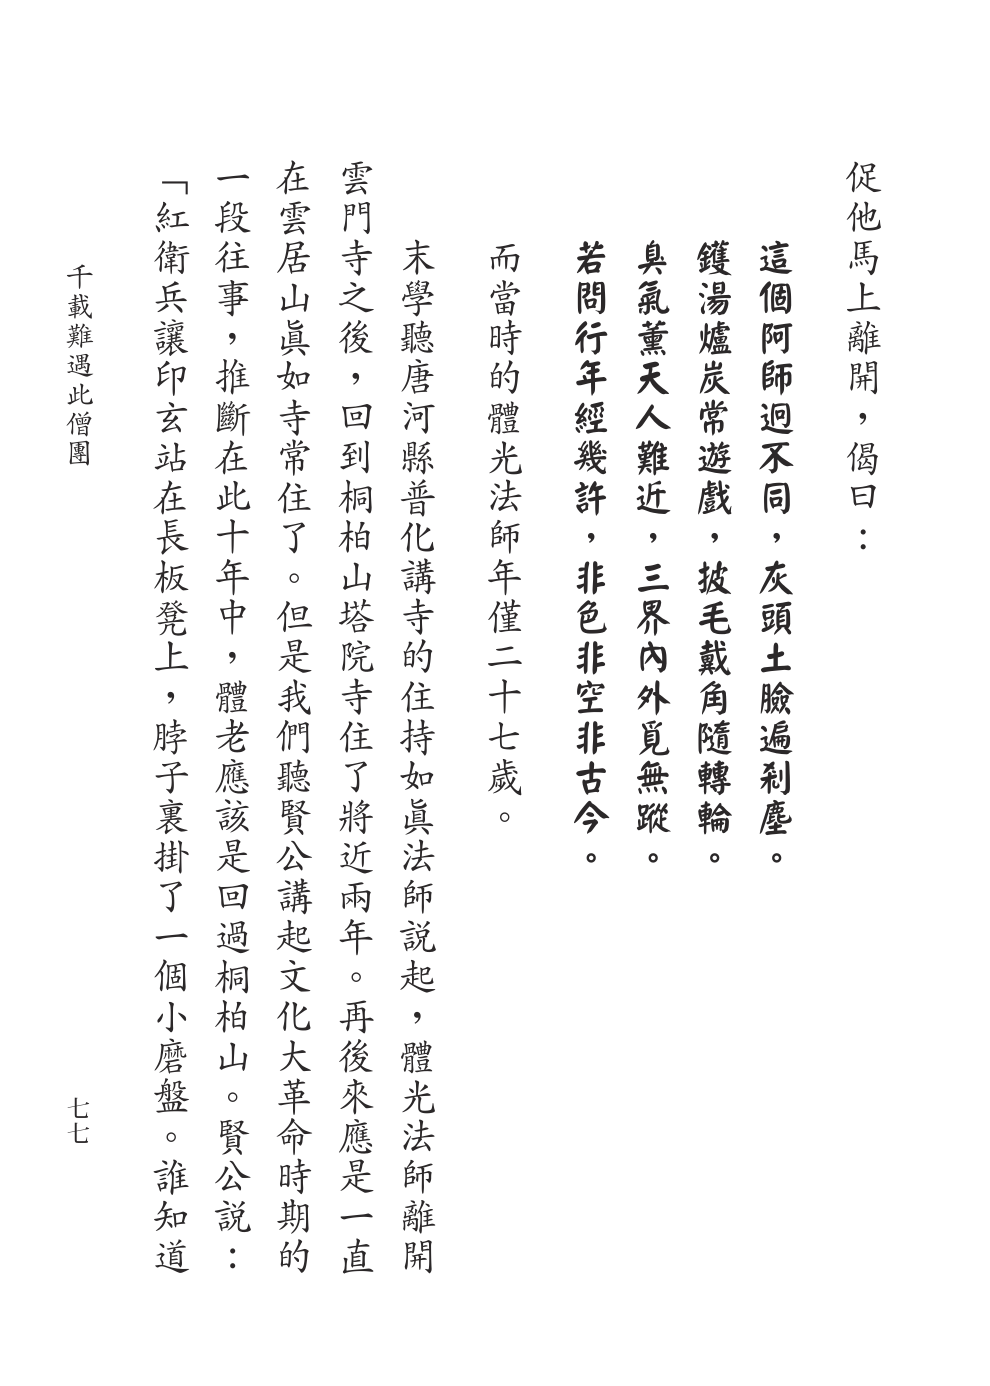 促他馬上離開，偈曰：
這個阿師迥不同，灰頭土臉遍剎塵。
鑊湯爐炭常遊戲，披毛戴角隨轉輪。
臭氣薰天人難近，三界內外覓無蹤。
若問行年經幾許，非色非空非古今。
而當時的體光法師年僅二十七歲。
末學聽唐河縣普化講寺的住持如真法師說起，體光法師離開
雲門寺之後，回到桐柏山塔院寺住了將近兩年。再後來應是一直
在雲居山真如寺常住了。但是我們聽賢公講起文化大革命時期的
一段往事，推斷在此十年中，體老應該是回過桐柏山。賢公說：
「紅衛兵讓印玄站在長板凳上，脖子裏掛了一個小磨盤。誰知道
千載難遇此僧團
七七